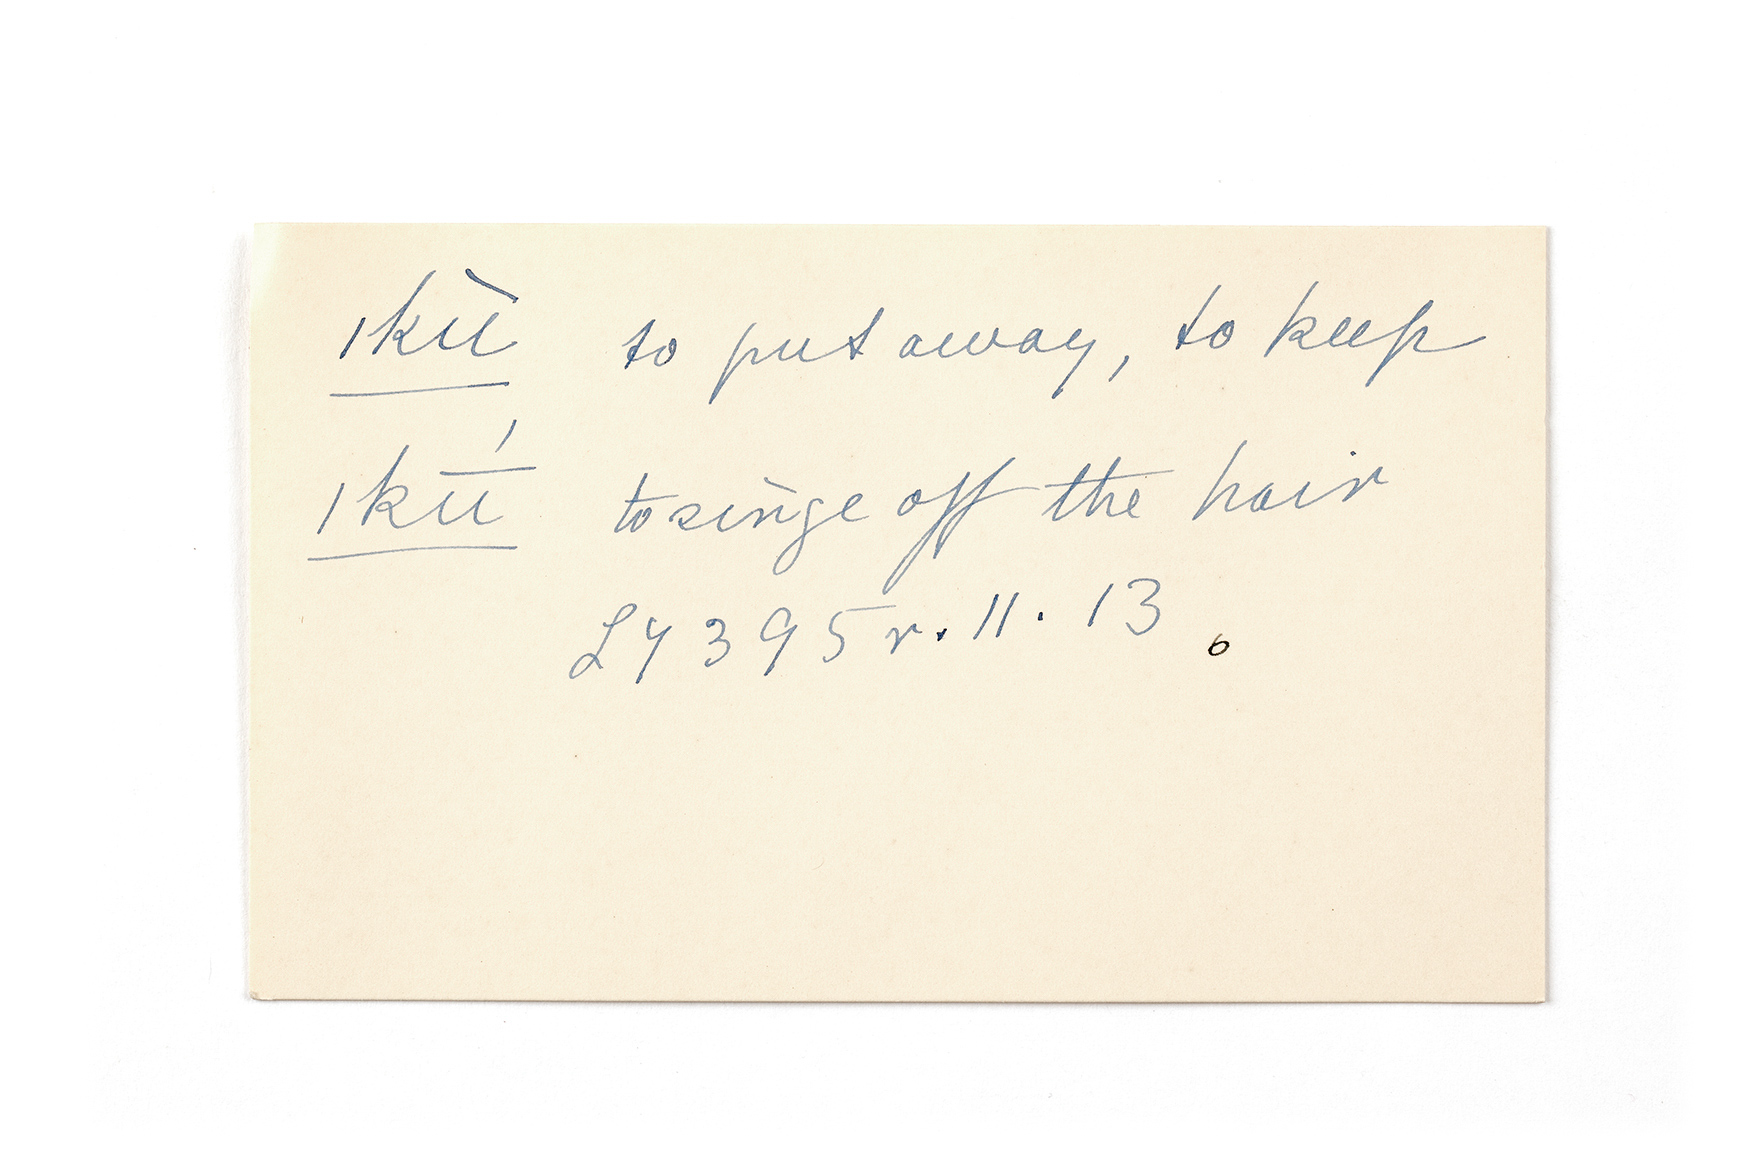 ıkıı̀ to put away, to keep
ıkıī́ to singe off the hair
LY 395 r. 11. 13
6